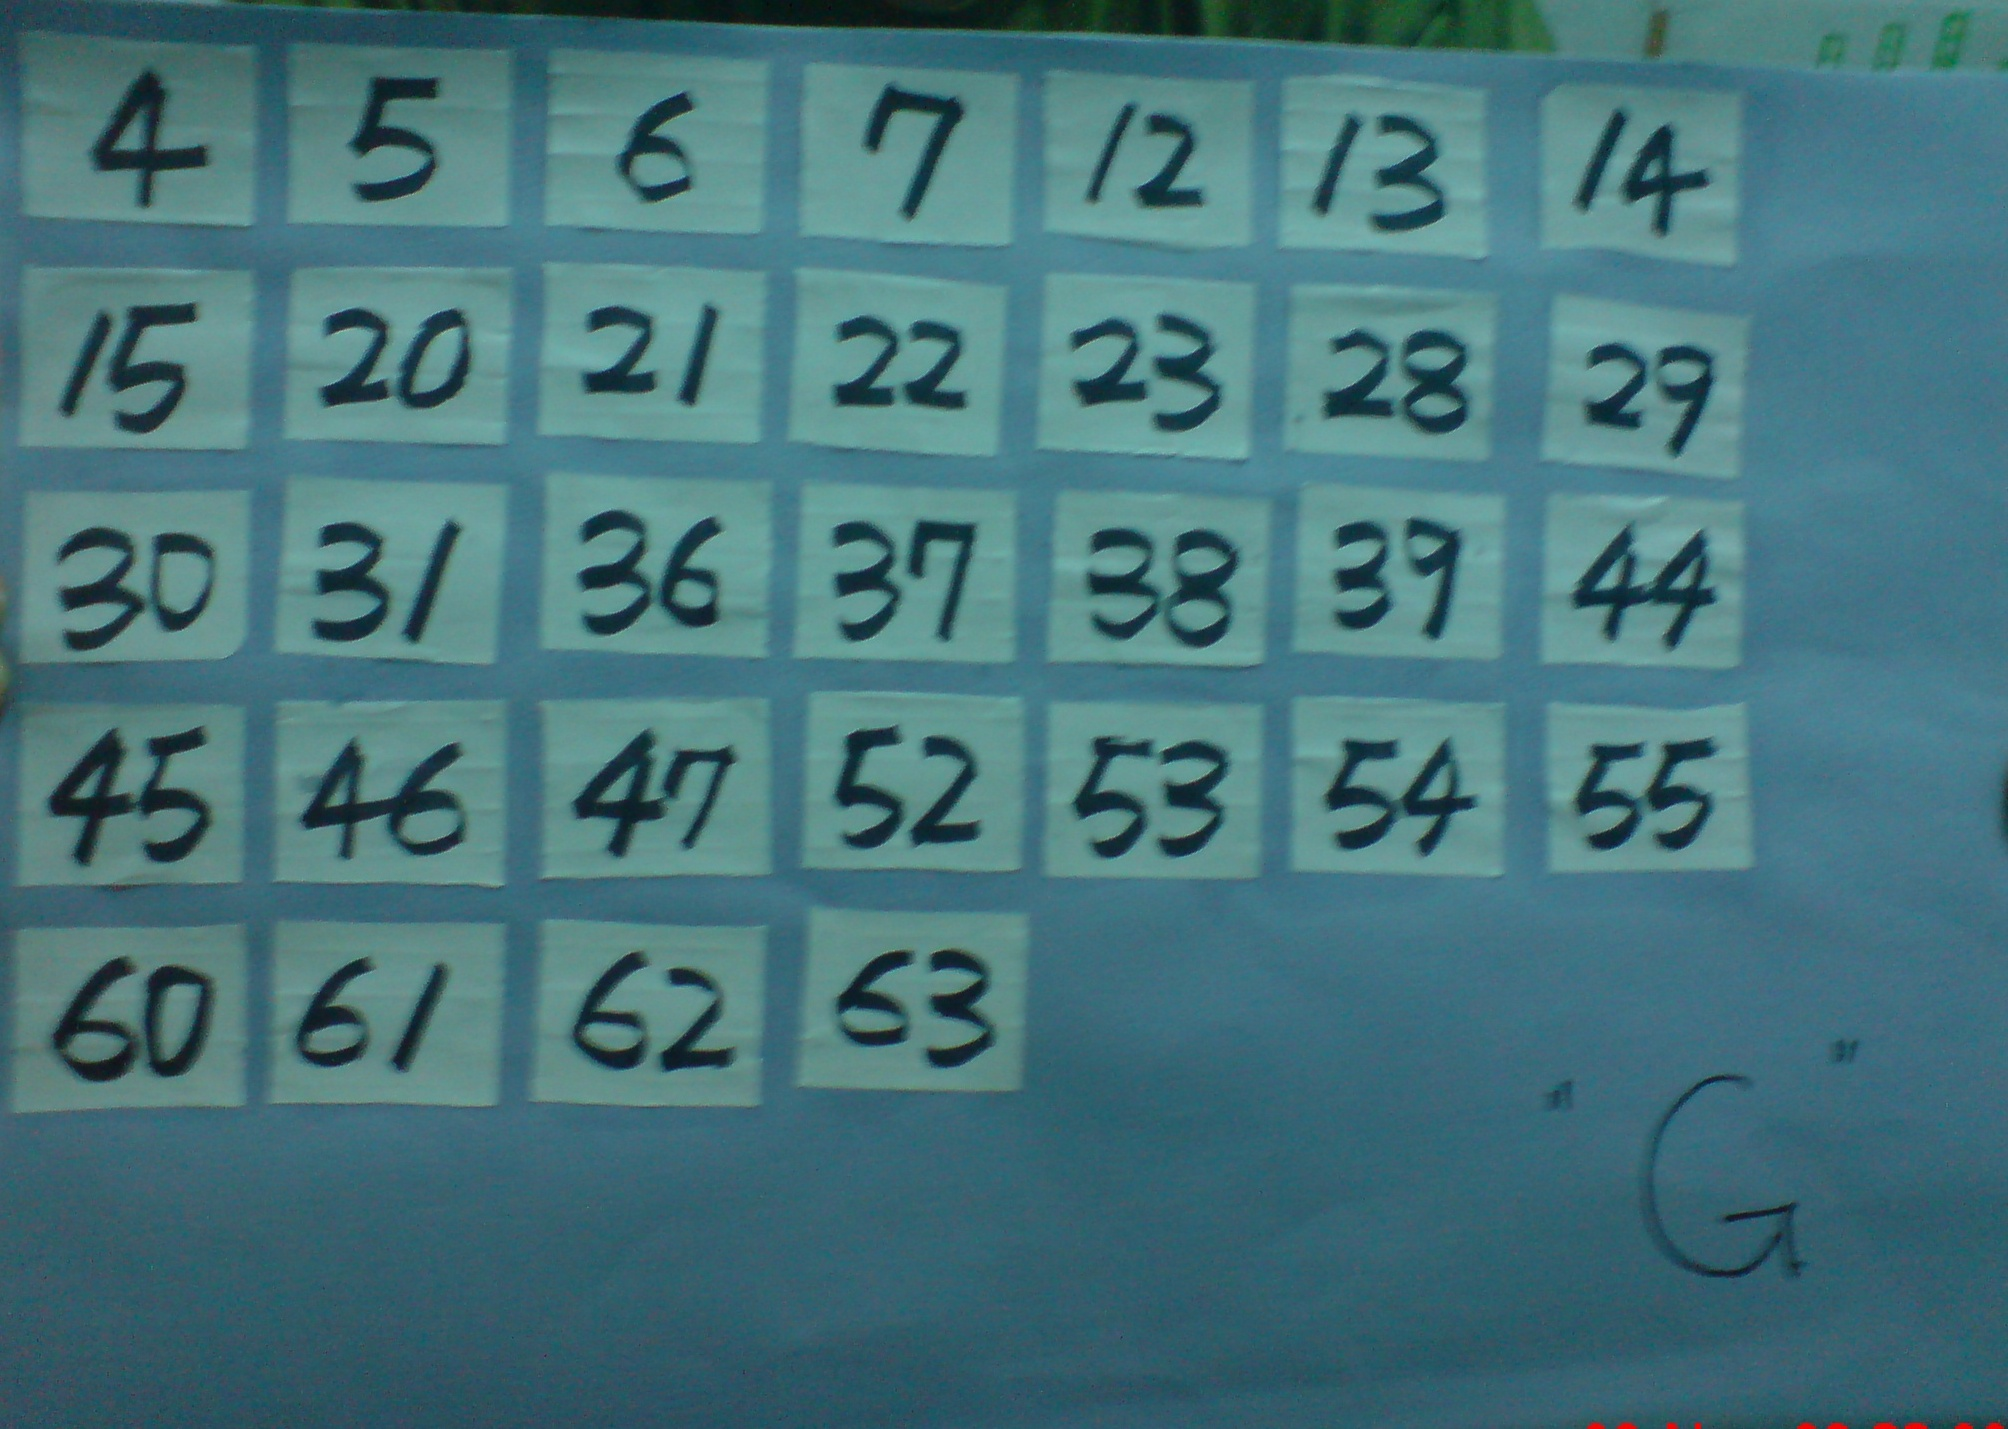 4 5 6 7 12 13 14
15 20 21 22 23 28 29
30 31 36 37 38 39 44
45 46 47 52 53 54 55
60 61 62 63
"G"